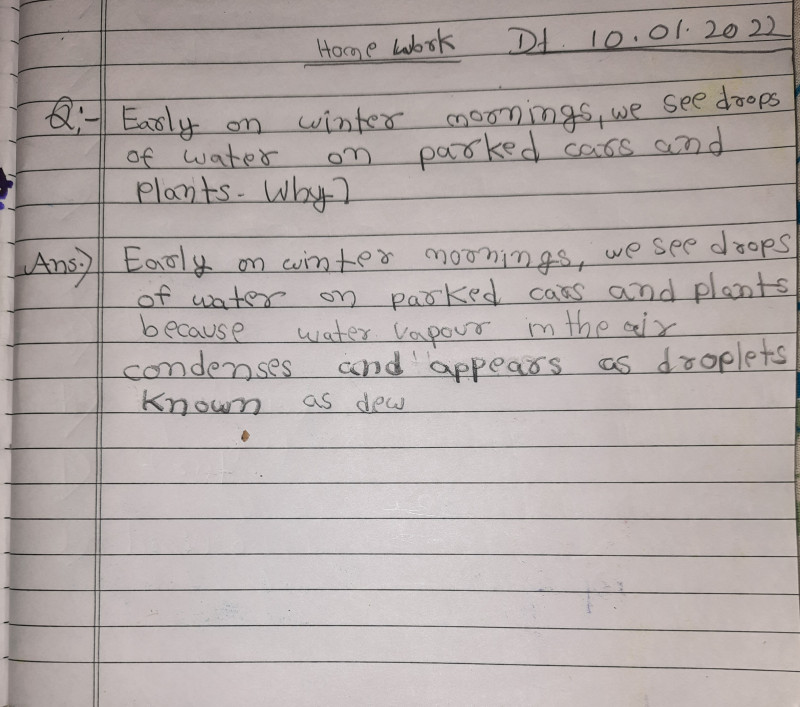 Home Work Dt. 10.01.2022
Q:- Early on winter mornings, we see drops
of water on parked cars and
plants. Why?
Ans:) Early on winter mornings, we see drops
of water on parked cars and plants
because water vapour in the air
condenses and appears as droplets
known as dew